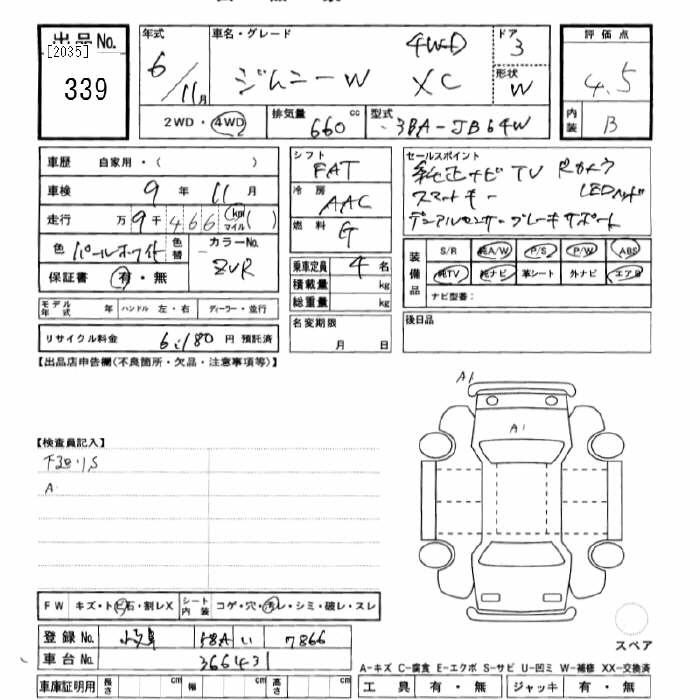 出品No.
[2035]
339
年式
6/11月
車名・グレード
ジムニーW XC 4WD
ドア
3
形状
W
評価点
4.5
内装
B
2WD・4WD
排気量
660 cc
型式
3BA-JB64W
車歴 自家用・( )
車検 9年 11月
走行 万9千466 km マイル ( )
色 パールホワイト 色替
カラーNo.
ZVR
保証書 有・無
シフト
FAT
冷房
AAC
燃料
G
乗車定員 4名
積載量 kg
総重量 kg
セールスポイント
純正ナビ TV Rカメラ
スマートキー LEDヘッド
デュアルセンサーブレーキサポート
装備品
S/R 純A/W P/S P/W ABS
純TV 純ナビ 革シート 外ナビ エアB
ナビ型番:
モデル年式 年 ハンドル 左・右 ディーラー・並行
リサイクル料金 6,180円 預託済
名変期限
月 日
後日品
【出品店申告欄(不良箇所・欠品・注意事項等)】
A1
A1
【検査員記入】
下回りS
A
FW キズ・トビ石・割レX
シート内装 コゲ・穴・汚レ・シミ・破レ・スレ
登録No. 58A い 7866
車台No. 366431
スペア
A-キズ C-腐食 E-エクボ S-サビ U-凹ミ W-補修 XX-交換済
車庫証明用 長さ cm 幅 cm 高さ cm
工具 有・無 ジャッキ 有・無